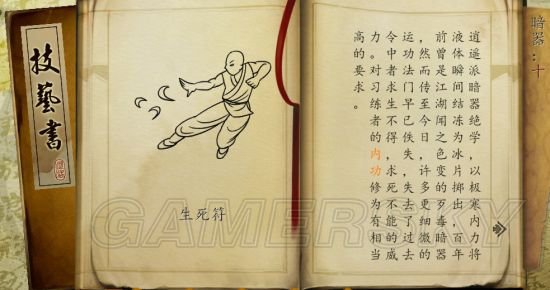 技藝書
生死符
暗器：十
逍遥派暗器绝学，以极寒内力将
液体瞬间结冻为冰片掷出，百年
前曾是江湖闻之色变的歹毒暗器
，然而传至今日，许多更细微的
运功法门早已佚失，失去了过去
令中者求生不得，求死不能的威
力。对习练者的内功修为有相当
高的要求。
GAMERSKY